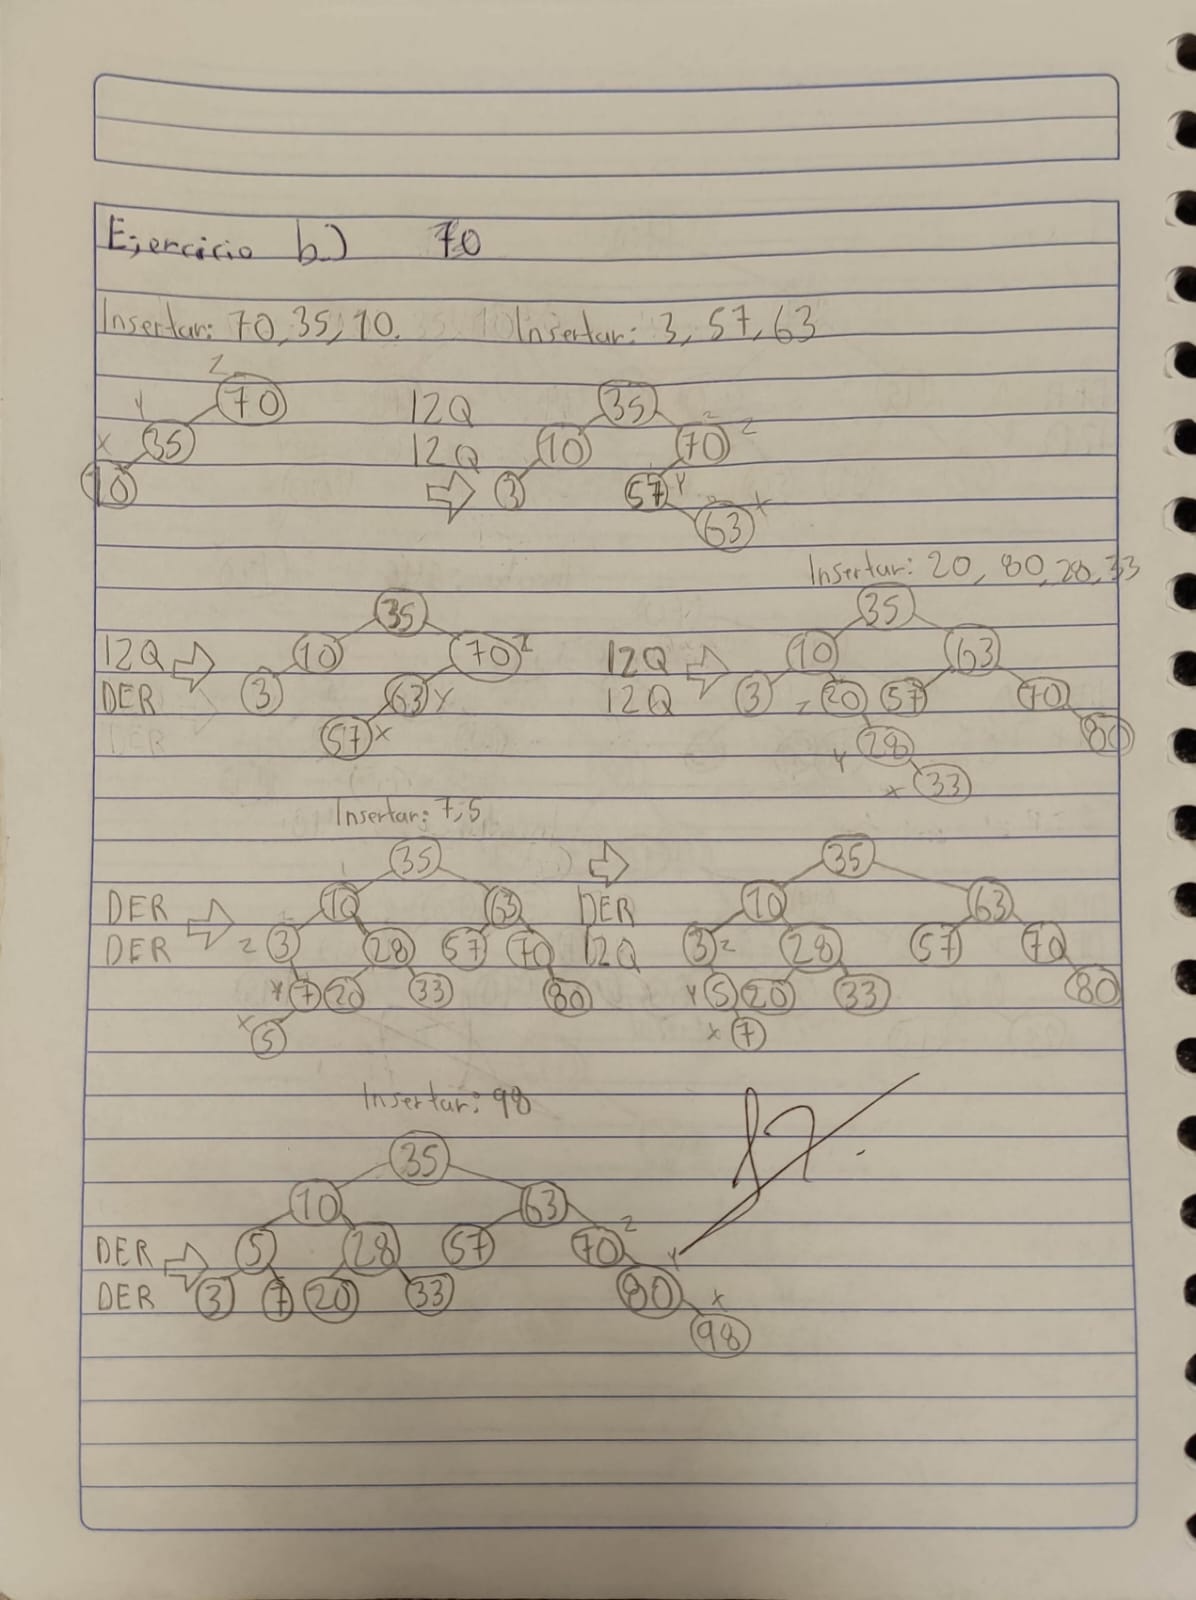 Ejercicio b.) 70
Insertar: 70, 35, 10. Insertar: 3, 57, 63
Z
70
Y
35
X
10
IZQ
IZQ
35
10 70 Z
3 57 Y
63 X
IZQ
DER
35
10 70 Z
3 63 Y
57 X
Insertar: 20, 80, 28, 33
IZQ
IZQ
35
10 63
3 Z 20 57 70
Y 28 80
X 33
Insertar: 7, 5
DER
DER
35
10 63
Z 3 28 57 70
Y 7 20 33 80
X 5
DER
IZQ
35
10 63
3 Z 28 57 70
Y 5 20 33 80
X 7
Insertar: 98
DER
DER
35
10 63
5 28 57 70 Z
3 7 20 33 80 Y
98 X